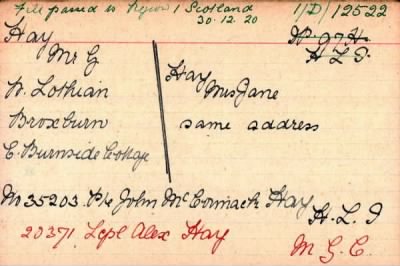 File passed to Region 1 Scotland
30.12.20
1/D/12522
Hay
Mr G
W. Lothian
Broxburn
E. Burnside Cottage
H.L.I.
Hay
Mrs Jane
same address
No 35203. Pte John McCormack Hay
H.L.I
20371 Lcpl Alex Hay
M.G.C.